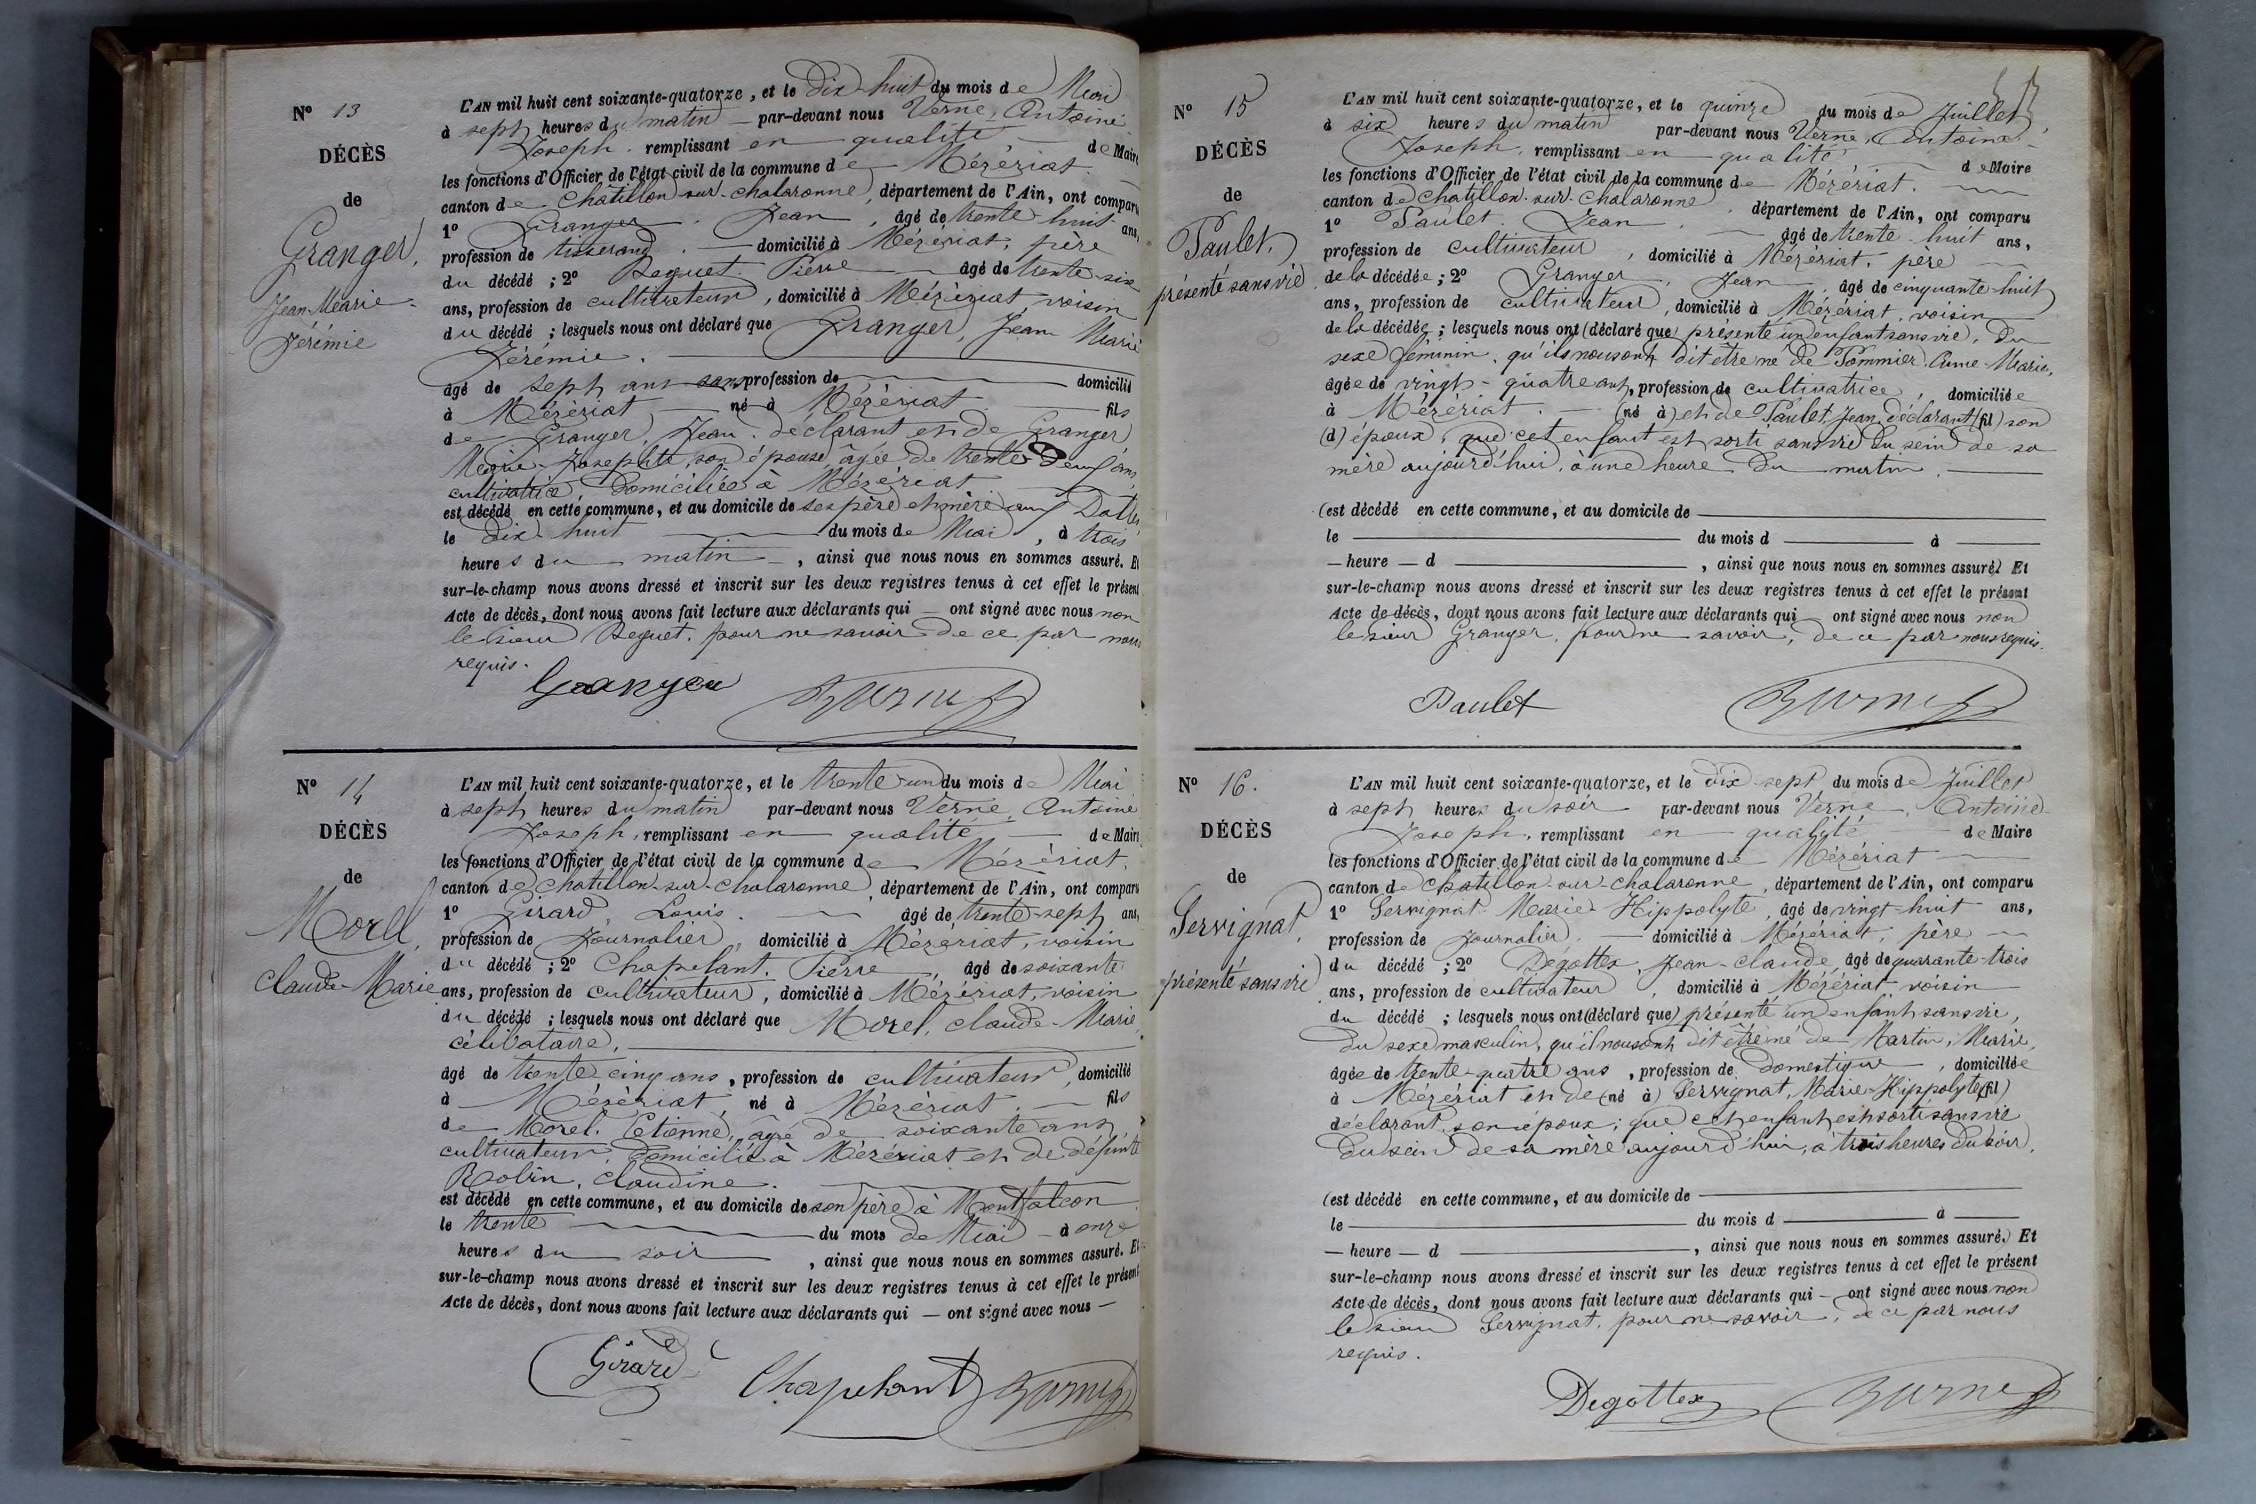 N° 13
DÉCÈS
de
Granger,
Jean-Marie
Jérémie
L'AN mil huit cent soixante-quatorze, et le dix-huit du mois de Mai
à sept heures du matin par-devant nous Verne, Antoine
Joseph, remplissant en qualité de Maire
les fonctions d'Officier de l'état civil de la commune de Mézériat
canton de Châtillon-sur-chalaronne, département de l'Ain, ont comparu
1° Granger, Jean, âgé de trente-huit ans,
profession de tisserand, domicilié à Mézériat, père
du décédé ; 2° Reguet, Pierre âgé de trente-six
ans, profession de cultivateur, domicilié à Mézériat, voisin
du décédé ; lesquels nous ont déclaré que Granger, Jean Marie
Jérémie.
âgé de sept ans sans profession de domicilié
à Mézériat né à Mézériat fils
de Granger, Jean, déclarant et de Granger
Marie-Josephte, son épouse, agée de trente-deux ans,
cultivatrice, domiciliée à Mézériat
est décédé en cette commune, et au domicile de ses père et mère aux
le dix-huit du mois de Mai, à trois
heures du matin, ainsi que nous nous en sommes assuré. Et
sur-le-champ nous avons dressé et inscrit sur les deux registres tenus à cet effet le présent
Acte de décès, dont nous avons fait lecture aux déclarants qui — ont signé avec nous non
le sieur Reguet, pour ne savoir de ce par nous
requis.
Granger
N° 14
DÉCÈS
de
Morel,
Claude-Marie
L'AN mil huit cent soixante-quatorze, et le trente-un du mois de Mai
à sept heures du matin par-devant nous Verne, Antoine
Joseph, remplissant en qualité de Maire
les fonctions d'Officier de l'état civil de la commune de Mézériat,
canton de chatillon-sur-chalaronne, département de l'Ain, ont comparu
1° Girard, Louis. âgé de trente-sept ans,
profession de Journalier, domicilié à Mézériat, voisin
du décédé ; 2° Chapelant, Pierre, âgé de soixante
ans, profession de cultivateur, domicilié à Mézériat, voisin
du décédé ; lesquels nous ont déclaré que Morel, claude-Marie,
célibataire,
âgé de trente-cinq ans, profession de cultivateur, domicilié
à Mézériat né à Mézériat, fils
de Morel, Etienne, âgé de soixante ans,
cultivateur, domicilié à Mézériat et de défunte
Robin, claudine.
est décédé en cette commune, et au domicile de son père à Montfalcon
le trente du mois de Mai à onze
heures du soir, ainsi que nous nous en sommes assuré. Et
sur-le-champ nous avons dressé et inscrit sur les deux registres tenus à cet effet le présent
Acte de décès, dont nous avons fait lecture aux déclarants qui — ont signé avec nous —
Girard
Chapelant
N° 15
DÉCÈS
de
Paulet,
présenté sans vie
L'AN mil huit cent soixante-quatorze, et le quinze du mois de Juillet,
à six heures du matin par-devant nous Verne, Antoine
Joseph, remplissant en qualité de Maire
les fonctions d'Officier de l'état civil de la commune de Mézériat.
canton de chatillon-sur-Chalaronne, département de l'Ain, ont comparu
1° Paulet, Jean, âgé de trente-huit ans,
profession de cultivateur, domicilié à Mézériat, père
de la décédée ; 2° Granger, Jean, âgé de cinquante-huit
ans, profession de cultivateur, domicilié à Mézériat, voisin
de la décédée ; lesquels nous ont (déclaré que) présenté un enfant sans vie, du
sexe féminin, qu'ils nous ont dit être né de Pommier Anne-Marie,
âgée de vingt-quatre ans, profession de cultivatrice, domiciliée
à Mézériat. (né à) et de Paulet, Jean, déclarant (fil) son
(d) époux, que cet enfant est sorti sans vie du sein de sa
mère aujourd'hui, à une heure du matin.
(est décédé en cette commune, et au domicile de
le du mois d à
— heure — d, ainsi que nous nous en sommes assuré) Et
sur-le-champ nous avons dressé et inscrit sur les deux registres tenus à cet effet le présent
Acte de décès, dont nous avons fait lecture aux déclarants qui ont signé avec nous non
le sieur Granger, pour ne savoir, de ce par nous requis.
Paulet
N° 16.
DÉCÈS
de
Servignat,
présenté sans vie
L'AN mil huit cent soixante-quatorze, et le dix-sept du mois de Juillet
à sept heures du soir par-devant nous Verne, Antoine
Joseph, remplissant en qualité de Maire
les fonctions d'Officier de l'état civil de la commune de Mézériat
canton de Chatillon-sur-chalaronne, département de l'Ain, ont comparu
1° Servignat Marie-Hippolyte, âgé de vingt-huit ans,
profession de Journalier, domicilié à Mézériat, père
du décédé ; 2° Degottex, Jean-claude, âgé de quarante-trois
ans, profession de cultivateur, domicilié à Mézériat voisin
du décédé ; lesquels nous ont (déclaré que) présenté un enfant sans vie,
du sexe masculin, qu'il nous ont dit être né de Martin, Marie,
âgée de trente-quatre ans, profession de Domestique, domiciliée
à Mézériat et de (né à) Servignat, Marie-Hippolyte (fil)
déclarant, son époux ; que cet enfant est sorti sans vie
du sein de sa mère aujourd'hui, à trois heures du soir.
(est décédé en cette commune, et au domicile de
le du mois d à
— heure — d, ainsi que nous nous en sommes assuré.) Et
sur-le-champ nous avons dressé et inscrit sur les deux registres tenus à cet effet le présent
Acte de décès, dont nous avons fait lecture aux déclarants qui — ont signé avec nous non
le sieur Servignat, pour ne savoir, de ce par nous
requis.
Degottex